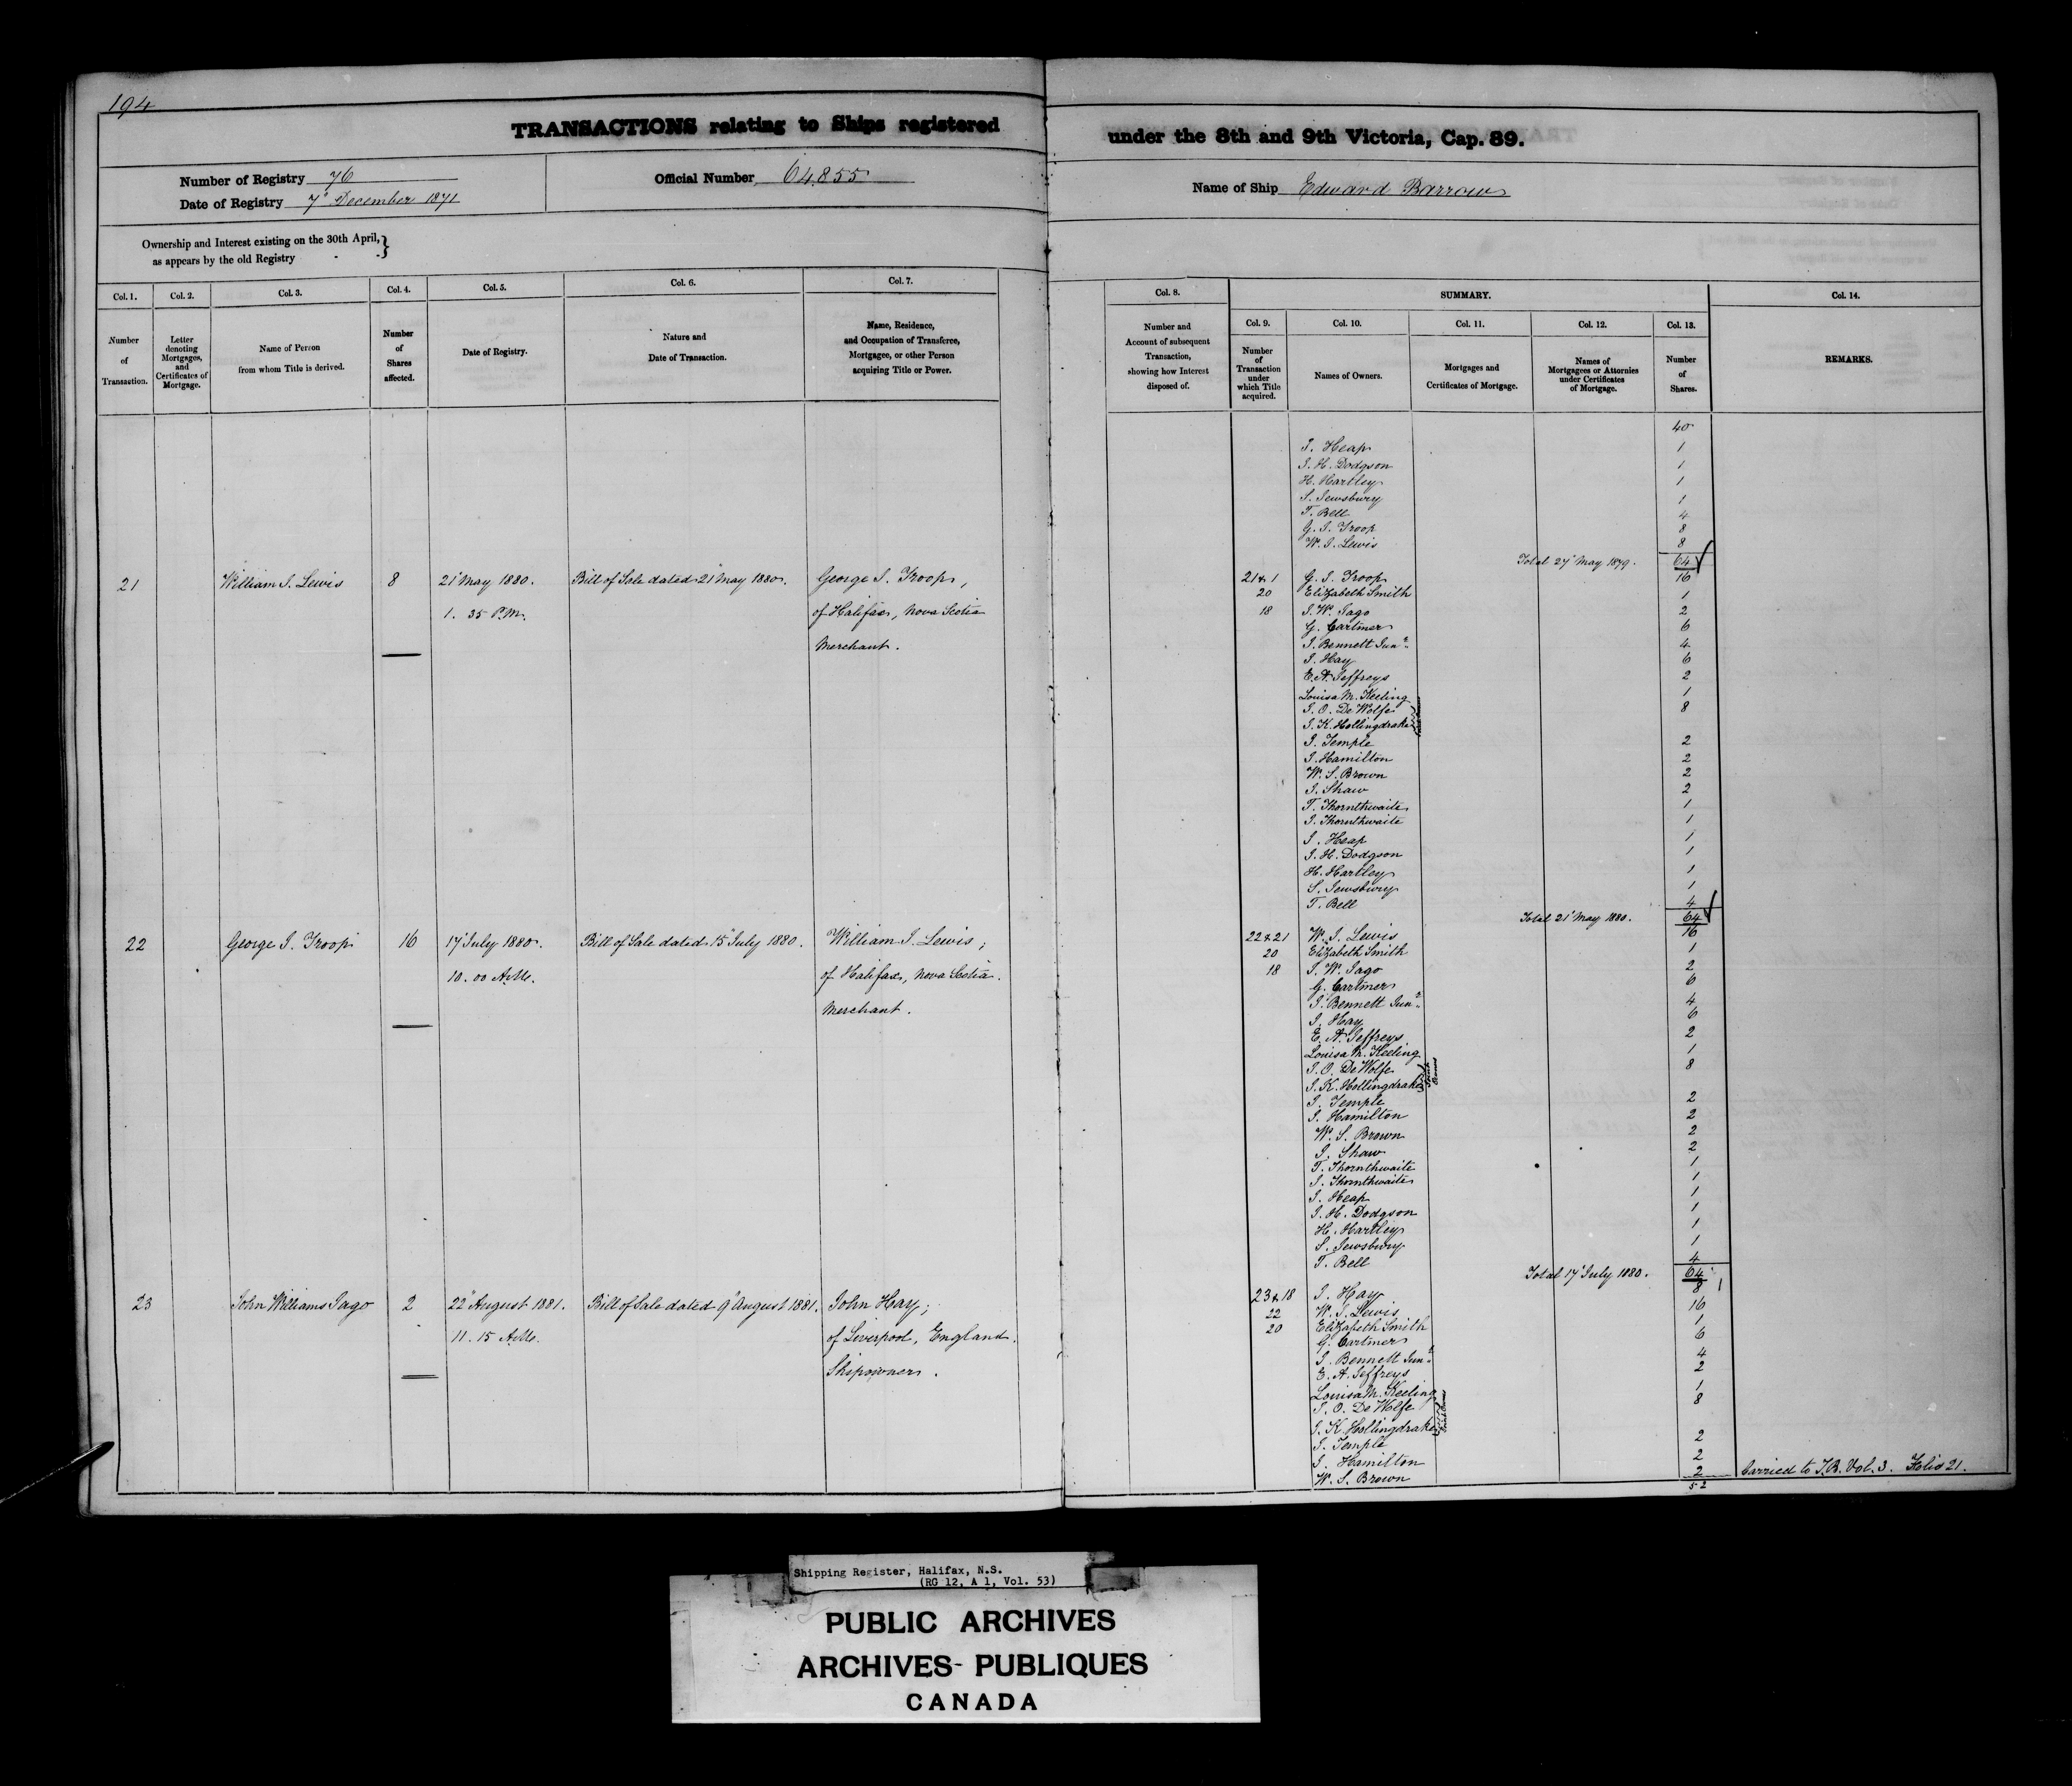 194
TRANSACTIONS relating to Ships registered under the 8th and 9th Victoria, Cap. 89.
Number of Registry 76
Date of Registry 7" December 1871
Official Number 64,855
Name of Ship Edward Barrow
Ownership and Interest existing on the 30th April, }
as appears by the old Registry - -
Col. 1.
Number
of
Transaction.
Col. 2.
Letter
denoting
Mortgages,
and
Certificates of
Mortgage.
Col. 3.
Name of Person
from whom Title is derived.
Col. 4.
Number
of
Shares
affected.
Col. 5.
Date of Registry.
Col. 6.
Nature and
Date of Transaction.
Col. 7.
Name, Residence,
and Occupation of Transferee,
Mortgagee, or other Person
acquiring Title or Power.
Col. 8.
Number and
Account of subsequent
Transaction,
showing how Interest
disposed of.
SUMMARY.
Col. 9.
Number
of
Transaction
under
which Title
acquired.
Col. 10.
Names of Owners.
Col. 11.
Mortgages and
Certificates of Mortgage.
Col. 12.
Names of
Mortgagees or Attornies
under Certificates
of Mortgage.
Col. 13.
Number
of
Shares.
Col. 14.
REMARKS.
40
J. Heap 1
J. H. Dodgson 1
H. Hartley 1
S. Jewsbury 1
T. Bell 4
G. J. Troop 8
W. J. Lewis 8
Total 27" May 1879. 64
21 William J. Lewis 8 21" May 1880. Bill of Sale dated 21" May 1880. George J. Troop,
1. 35 P.M. of Halifax, Nova Scotia
Merchant.
21 & 1 G. J. Troop 16
20 Elizabeth Smith 1
18 J. W. Jago 2
G. Cartmer 6
J. Bennett Junr. 4
J. Hay 6
E. A. Jeffreys 2
Louisa M. Keeling 1
J. O. De Wolfe 8
J. K. Hollingdrake
J. Temple 2
J. Hamilton 2
W. S. Brown 2
J. Shaw 2
T. Thornthwaite 1
J. Thornthwaite 1
J. Heap 1
J. H. Dodgson 1
H. Hartley 1
S. Jewsbury 1
T. Bell 4
Total 21" May 1880. 64
22 George J. Troop 16 17" July 1880. Bill of Sale dated 15" July 1880. William J. Lewis;
10. 00 A.M. of Halifax, Nova Scotia.
Merchant.
22 & 21 W. J. Lewis 16
20 Elizabeth Smith 1
18 J. W. Jago 2
G. Cartmer 6
J. Bennett Junr. 4
J. Hay 6
E. A. Jeffreys 2
Louisa M. Keeling 1
J. O. De Wolfe 8
J. K. Hollingdrake
Joint
Owners
J. Temple 2
J. Hamilton 2
W. S. Brown 2
J. Shaw 2
T. Thornthwaite 1
J. Thornthwaite 1
J. Heap 1
J. H. Dodgson 1
H. Hartley 1
S. Jewsbury 1
T. Bell 4
Total 17" July 1880. 64
23 John Williams Jago 2 22" August 1881. Bill of Sale dated 9" August 1881. John Hay;
11. 15 A.M. of Liverpool, England.
Shipowner.
23 & 18 J. Hay 8
22 W. J. Lewis 16
20 Elizabeth Smith 1
G. Cartmer 6
J. Bennett Junr. 4
E. A. Jeffreys 2
Louisa M. Keeling 1
J. O. De Wolfe 8
J. K. Hollingdrake
J. Temple 2
J. Hamilton 2
W. S. Brown 2
52
Carried to T.B. Vol. 3. Folio 21.
Shipping Register, Halifax, N.S.
(RG 12, A 1, Vol. 53)
PUBLIC ARCHIVES
ARCHIVES PUBLIQUES
CANADA